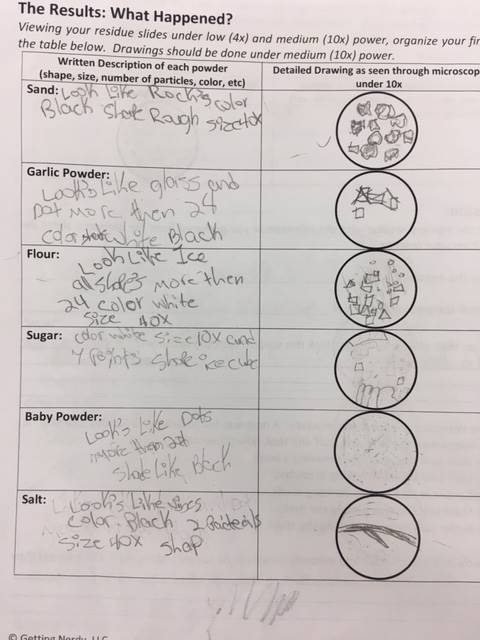 The Results: What Happened?
Viewing your residue slides under low (4x) and medium (10x) power, organize your fin
the table below. Drawings should be done under medium (10x) power.
Written Description of each powder
(shape, size, number of particles, color, etc)
Detailed Drawing as seen through microscop
under 10x
Sand: Look Like Rock's color
Black Rough size
Garlic Powder:
Look's Like glass and
Dot more then 24
color white Black
Flour:
Look Like Ice
more then
24 color white
size 40X
Sugar: color white size 10X
4 Points
Baby Powder:
Look's Like Dots
more then
Like Black
Salt: Look's Like
color Black 2
size 40X shap
© Getting Nerdy, LLC